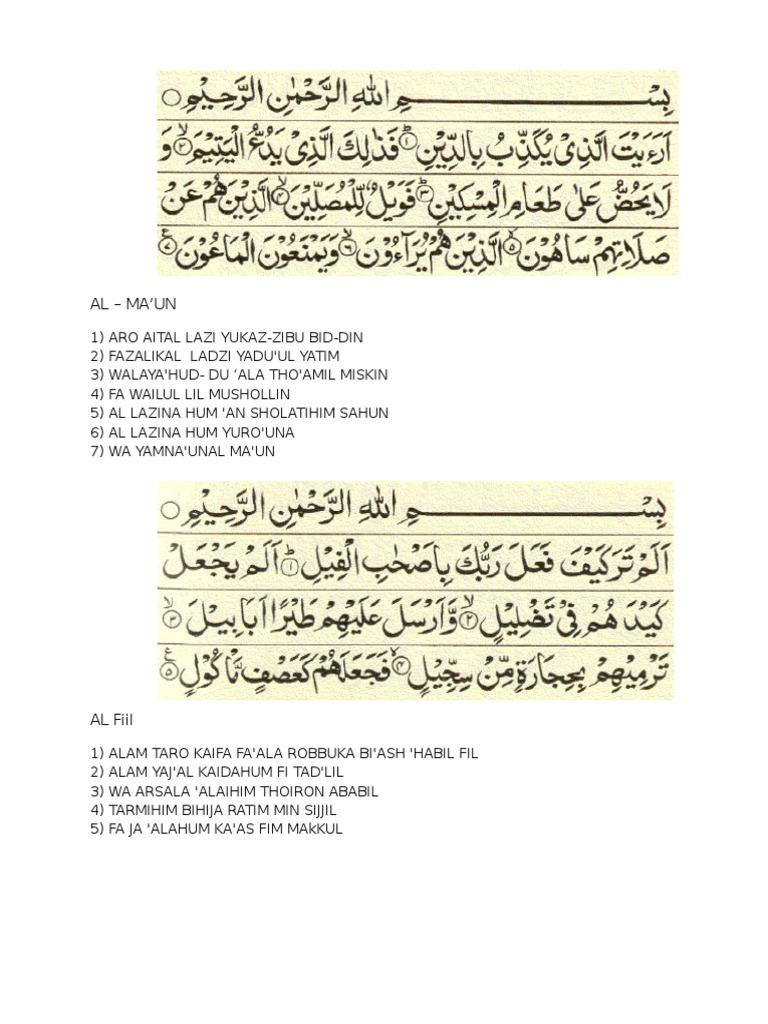 بِسْمِ اللهِ الرَّحْمٰنِ الرَّحِيْمِ
اَرَءَيْتَ الَّذِىْ يُكَذِّبُ بِالدِّيْنِ ۱ فَذٰلِكَ الَّذِىْ يَدُعُّ الْيَتِيْمَ ۲ وَ
لَا يَحُضُّ عَلٰى طَعَامِ الْمِسْكِيْنِ ۳ فَوَيْلٌ لِّلْمُصَلِّيْنَ ۴ الَّذِيْنَ هُمْ عَنْ
صَلَاتِهِمْ سَاهُوْنَ ۵ الَّذِيْنَ هُمْ يُرَآءُوْنَ ۶ وَيَمْنَعُوْنَ الْمَاعُوْنَ ۷
AL – MA’UN
1) ARO AITAL LAZI YUKAZ-ZIBU BID-DIN
2) FAZALIKAL  LADZI YADU'UL YATIM
3) WALAYA'HUD- DU ‘ALA THO'AMIL MISKIN
4) FA WAILUL LIL MUSHOLLIN
5) AL LAZINA HUM 'AN SHOLATIHIM SAHUN
6) AL LAZINA HUM YURO'UNA
7) WA YAMNA'UNAL MA'UN
بِسْمِ اللهِ الرَّحْمٰنِ الرَّحِيْمِ
اَلَمْ تَرَ كَيْفَ فَعَلَ رَبُّكَ بِاَصْحٰبِ الْفِيْلِ ۱ اَلَمْ يَجْعَلْ
كَيْدَ هُمْ فِىْ تَضْلِيْلٍ ۲ وَّاَرْسَلَ عَلَيْهِمْ طَيْرًا اَبَابِيْلَ ۳
تَرْمِيْهِمْ بِحِجَارَةٍ مِّنْ سِجِّيْلٍ ۴ فَجَعَلَهُمْ كَعَصْفٍ مَّاْكُوْلٍ ۵
AL Fiil
1) ALAM TARO KAIFA FA'ALA ROBBUKA BI'ASH 'HABIL FIL
2) ALAM YAJ'AL KAIDAHUM FI TAD'LIL
3) WA ARSALA 'ALAIHIM THOIRON ABABIL
4) TARMIHIM BIHIJA RATIM MIN SIJJIL
5) FA JA 'ALAHUM KA'AS FIM MAkKUL